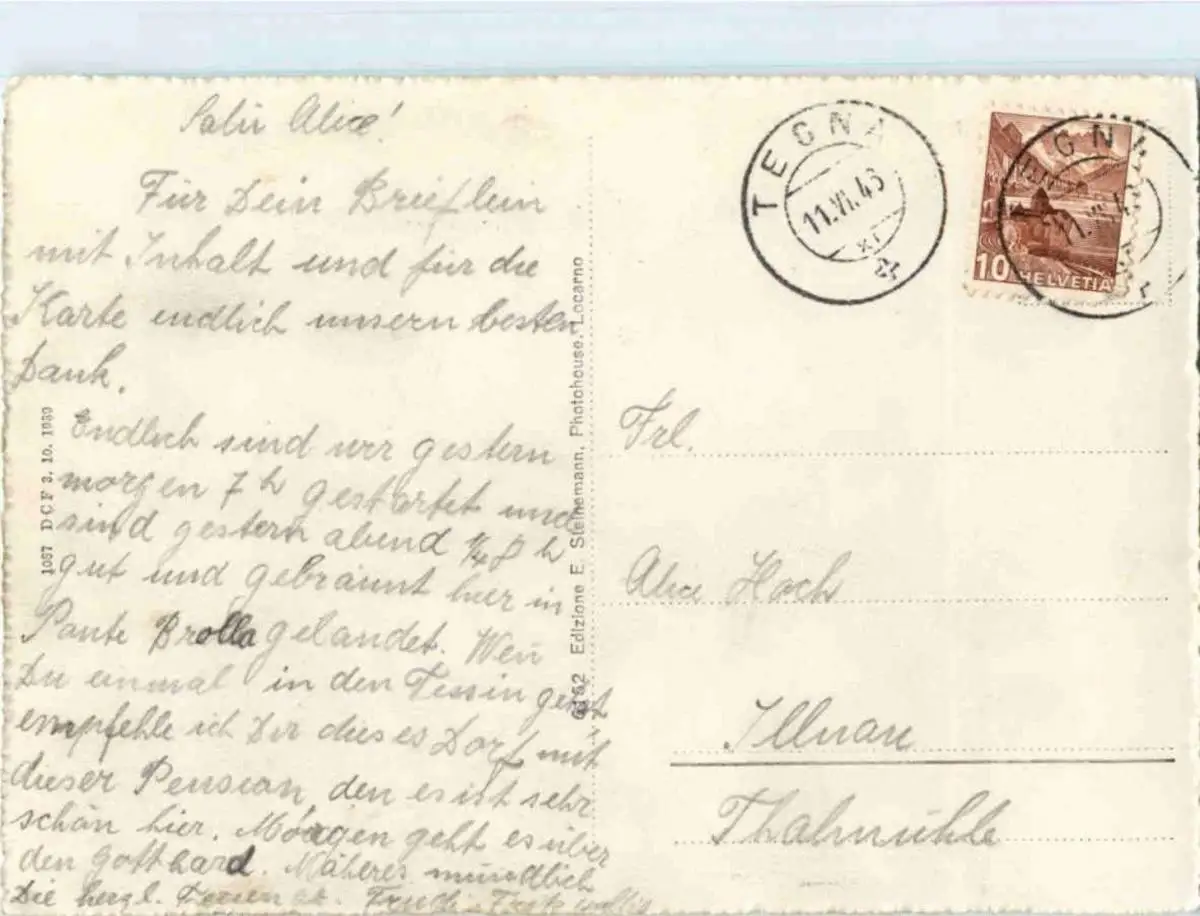 Salü Alice!
Für Dein Brieflein
mit Inhalt und für die
Karte endlich unsern besten
Dank.
Endlich sind wir gestern
morgen 7 h gestartet und
sind gestern abend ¼ 8 h
gut und gebrannt hier in
Ponte Brolla gelandet. Wen
Du einmal in den Tessin gehst
empfehle ich Dir dieses Dorf mit
dieser Pension, den es ist sehr
schön hier. Morgen geht es über
den Gotthard. Näheres mündlich
Die herzl.
1087 DCF 3. 10. 1939
6152 Edizione E. Steinemann, Photohouse, Locarno
TEGNA
11.VI.43
TEGNA
11.VI.43
10 HELVETIA
Frl.
Alice Hoch
Illnau
Thalmühle